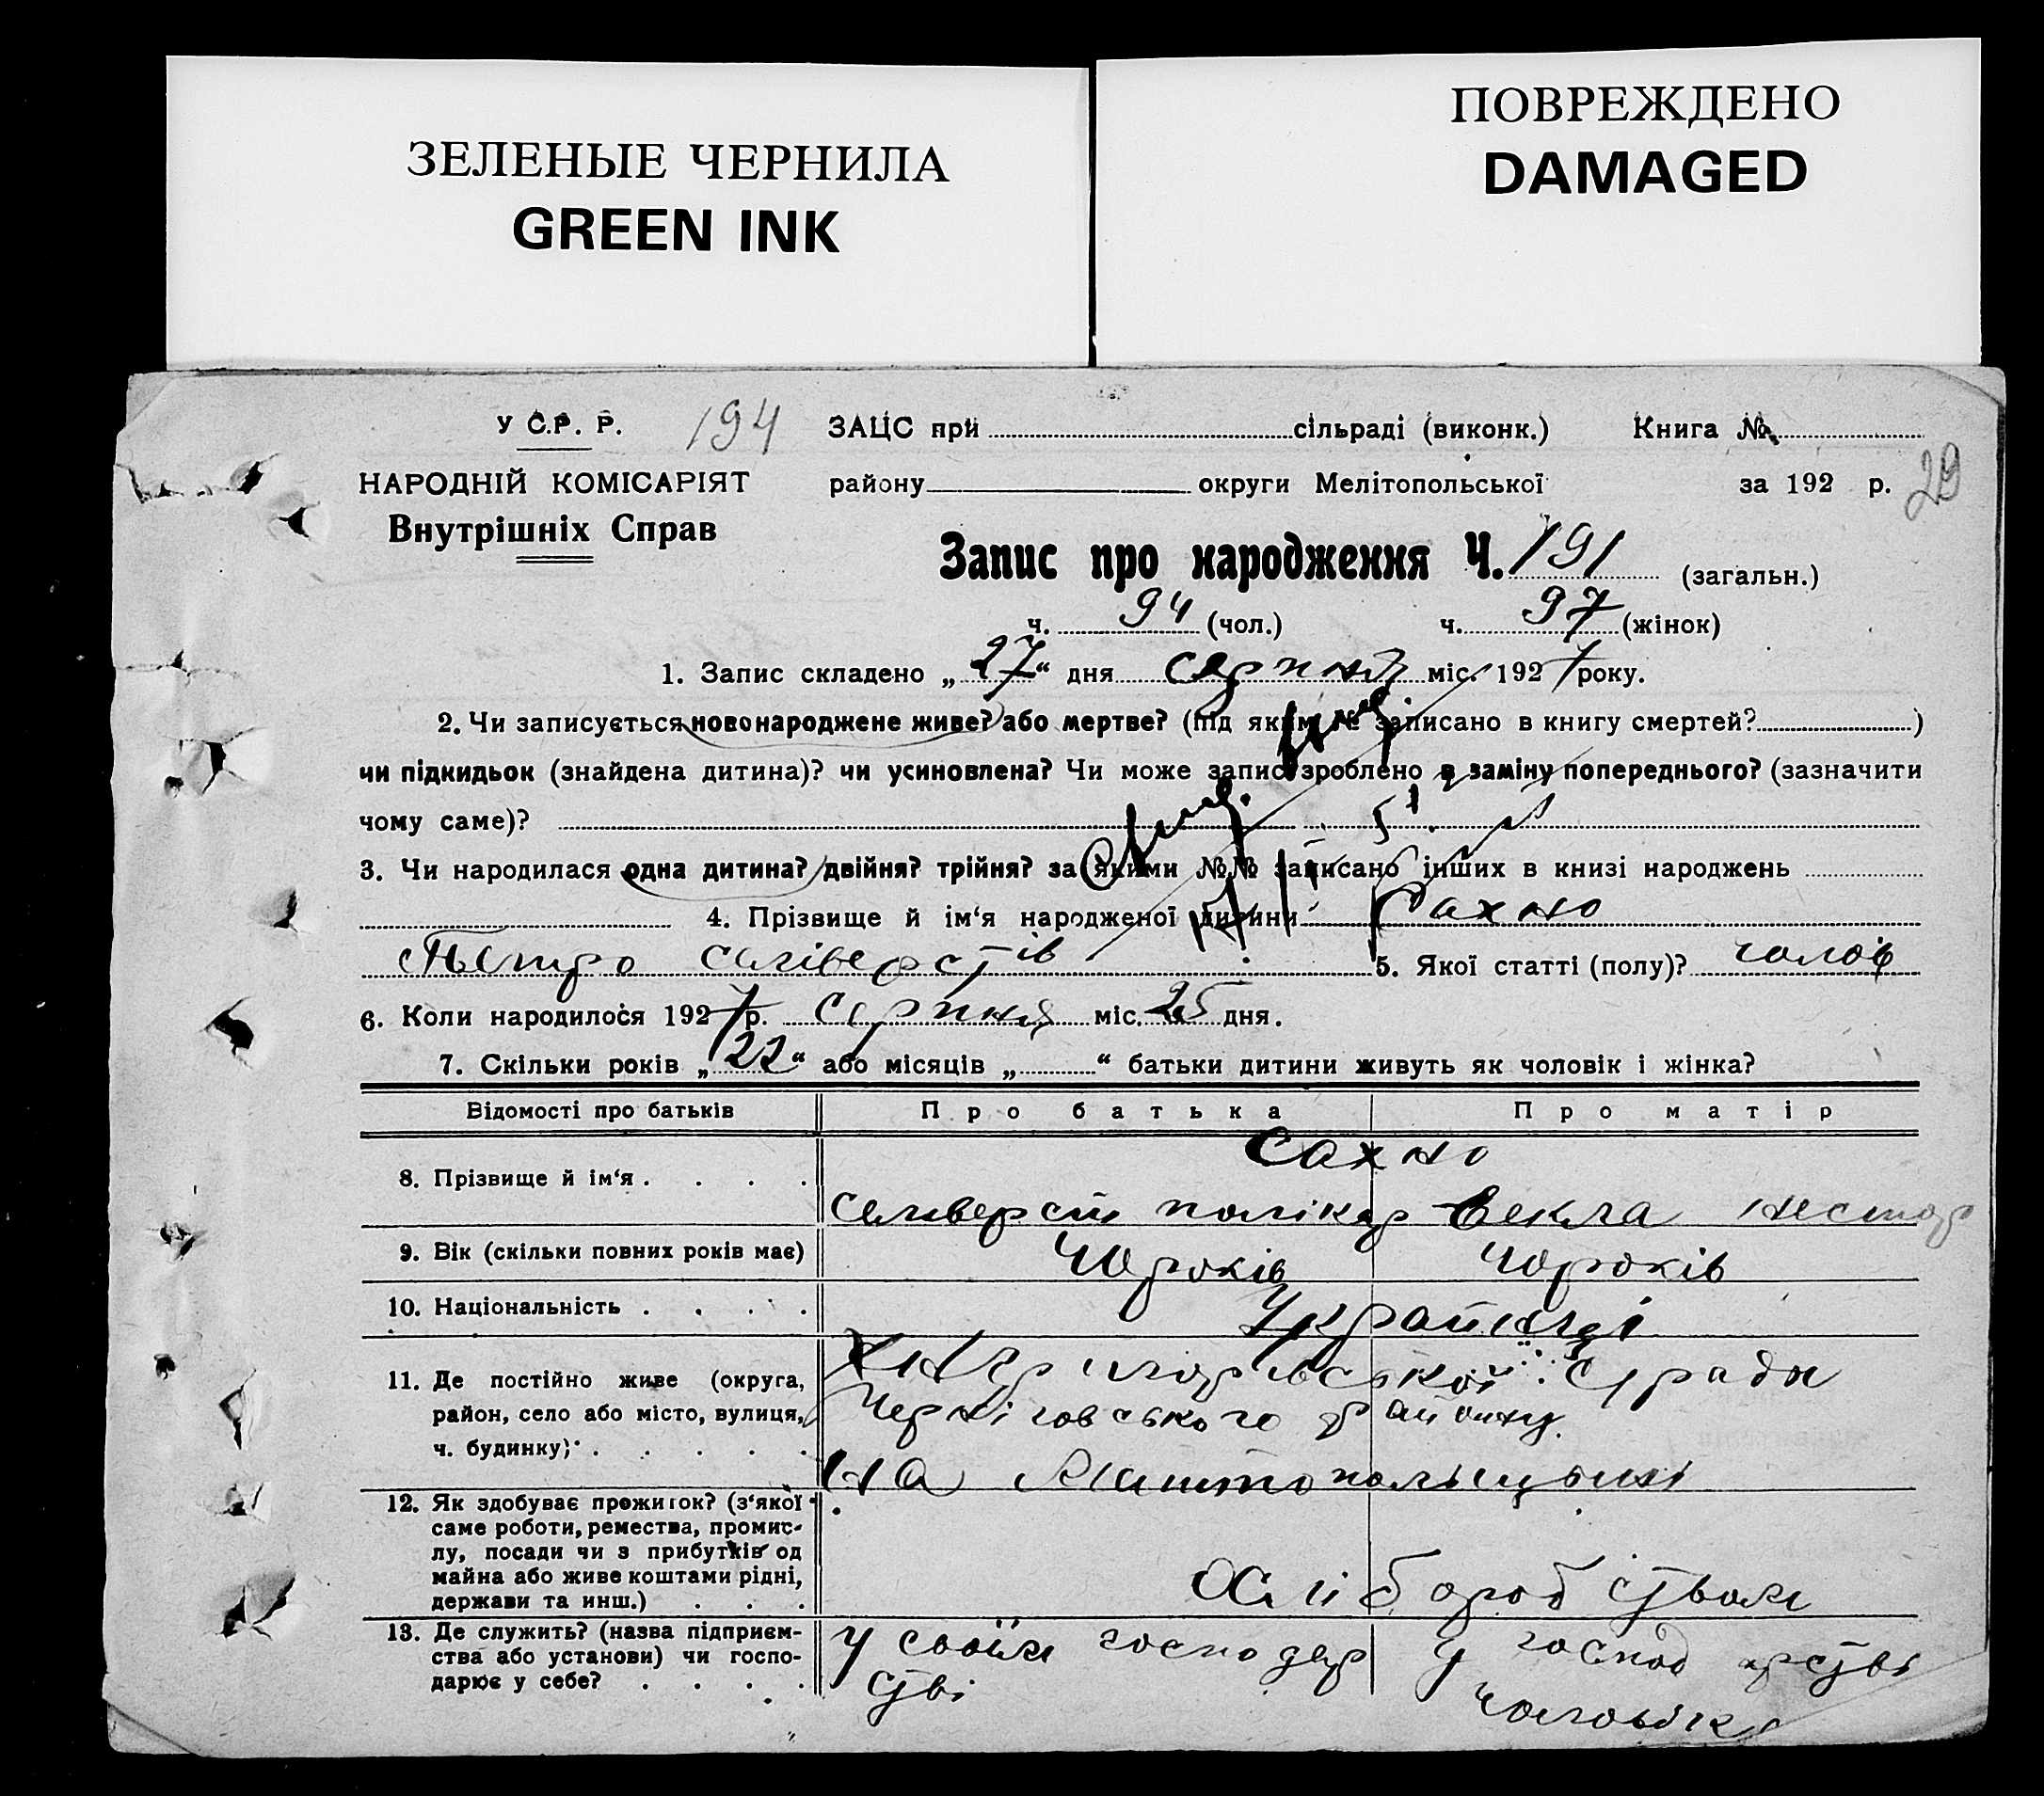 ЗЕЛЕНЫЕ ЧЕРНИЛА
GREEN INK
ПОВРЕЖДЕНО
DAMAGED
У С.Р. Р. 194 ЗАЦС при сільраді (виконк.) Книга №
НАРОДНІЙ КОМІСАРІЯТ району округи Мелітопольської за 192 р. 29
Внутрішніх Справ
Запис про народження Ч. 191 (загальн.)
ч. 94 (чол.) ч. 97 (жінок)
1. Запис складено „27“ дня серпня міс. 1927 року.
2. Чи записується новонароджене живе? або мертве? (під яким № записано в книгу смертей? )
чи підкидьок (знайдена дитина)? чи усиновлена? Чи може запис зроблено в заміну попереднього? (зазначити
чому саме)?
3. Чи народилася одна дитина? двійня? трійня? за якими №№ записано інших в книзі народжень
4. Прізвище й ім‘я народженої дитини Сахно
Петро селіверстів 5. Якої статті (полу)? чолов
6. Коли народилося 1927 р. Серпня міс. 25 дня.
7. Скільки років „22“ або місяців „ “ батьки дитини живуть як чоловік і жінка?
Відомості про батьків Про батька Про матір
Сахно
8. Прізвище й ім‘я . . . .
селіверст полікар Векла нестор
9. Вік (скільки повних років має) 40 років 40 років
10. Національність . . . . Українці
11. Де постійно живе (округа, Сради
район, село або місто, вулиця, Черніговського району.
ч. будинку) . . . . .
на Мелітопольщині
12. Як здобуває прожиток? (з‘якої
саме роботи, ремества, промис-
лу, посади чи з прибутків од
майна або живе коштами рідні,
держави та инш.) . . . Хліборобством
13. Де служить? (назва підприєм- У своїм господар У господарстві
ства або установи) чи госпо- стві
дарює у себе? . . . . чоловіка